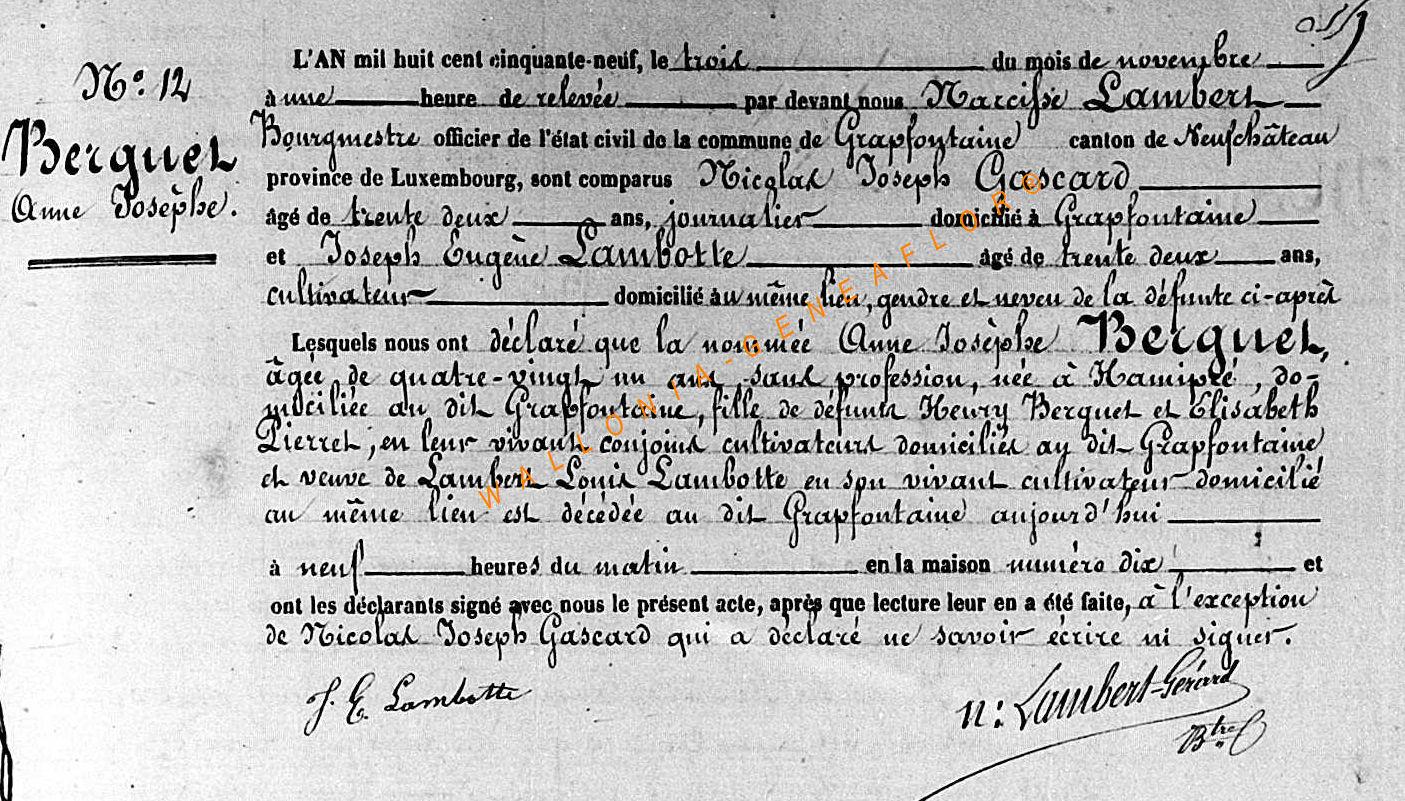 N° 12
Berguet
Anne Josèphe.
L'AN mil huit cent cinquante-neuf, le trois du mois de novembre
à une heure de relevée par devant nous Narcisse Lambert
Bourgmestre officier de l'état civil de la commune de Grapfontaine canton de Neufchâteau
province de Luxembourg, sont comparus Nicolas Joseph Gascard
âgé de trente deux ans, journalier domicilié à Grapfontaine
et Joseph Eugène Lambotte âgé de trente deux ans,
cultivateur domicilié au même lieu, gendre et neveu de la défunte ci-après
Lesquels nous ont déclaré que la nommée Anne Josèphe Berguet,
âgée de quatre-vingt un ans, sans profession, née à Hamipré, do-
miciliée au dit Grapfontaine, fille de défunts Henry Berguet et Elisabeth
Pierret, en leur vivant conjoins cultivateurs domiciliés au dit Grapfontaine
et veuve de Lambert Louis Lambotte en son vivant cultivateur domicilié
au même lieu est décédée au dit Grapfontaine aujourd'hui
à neuf heures du matin en la maison numéro dix et
ont les déclarants signé avec nous le présent acte, après que lecture leur en a été faite, à l'exception
de Nicolas Joseph Gascard qui a déclaré ne savoir écrire ni signer.
J. E. Lambotte
N: Lambert-Gérard
Btre
WALLONIA-GENEAFLOR©